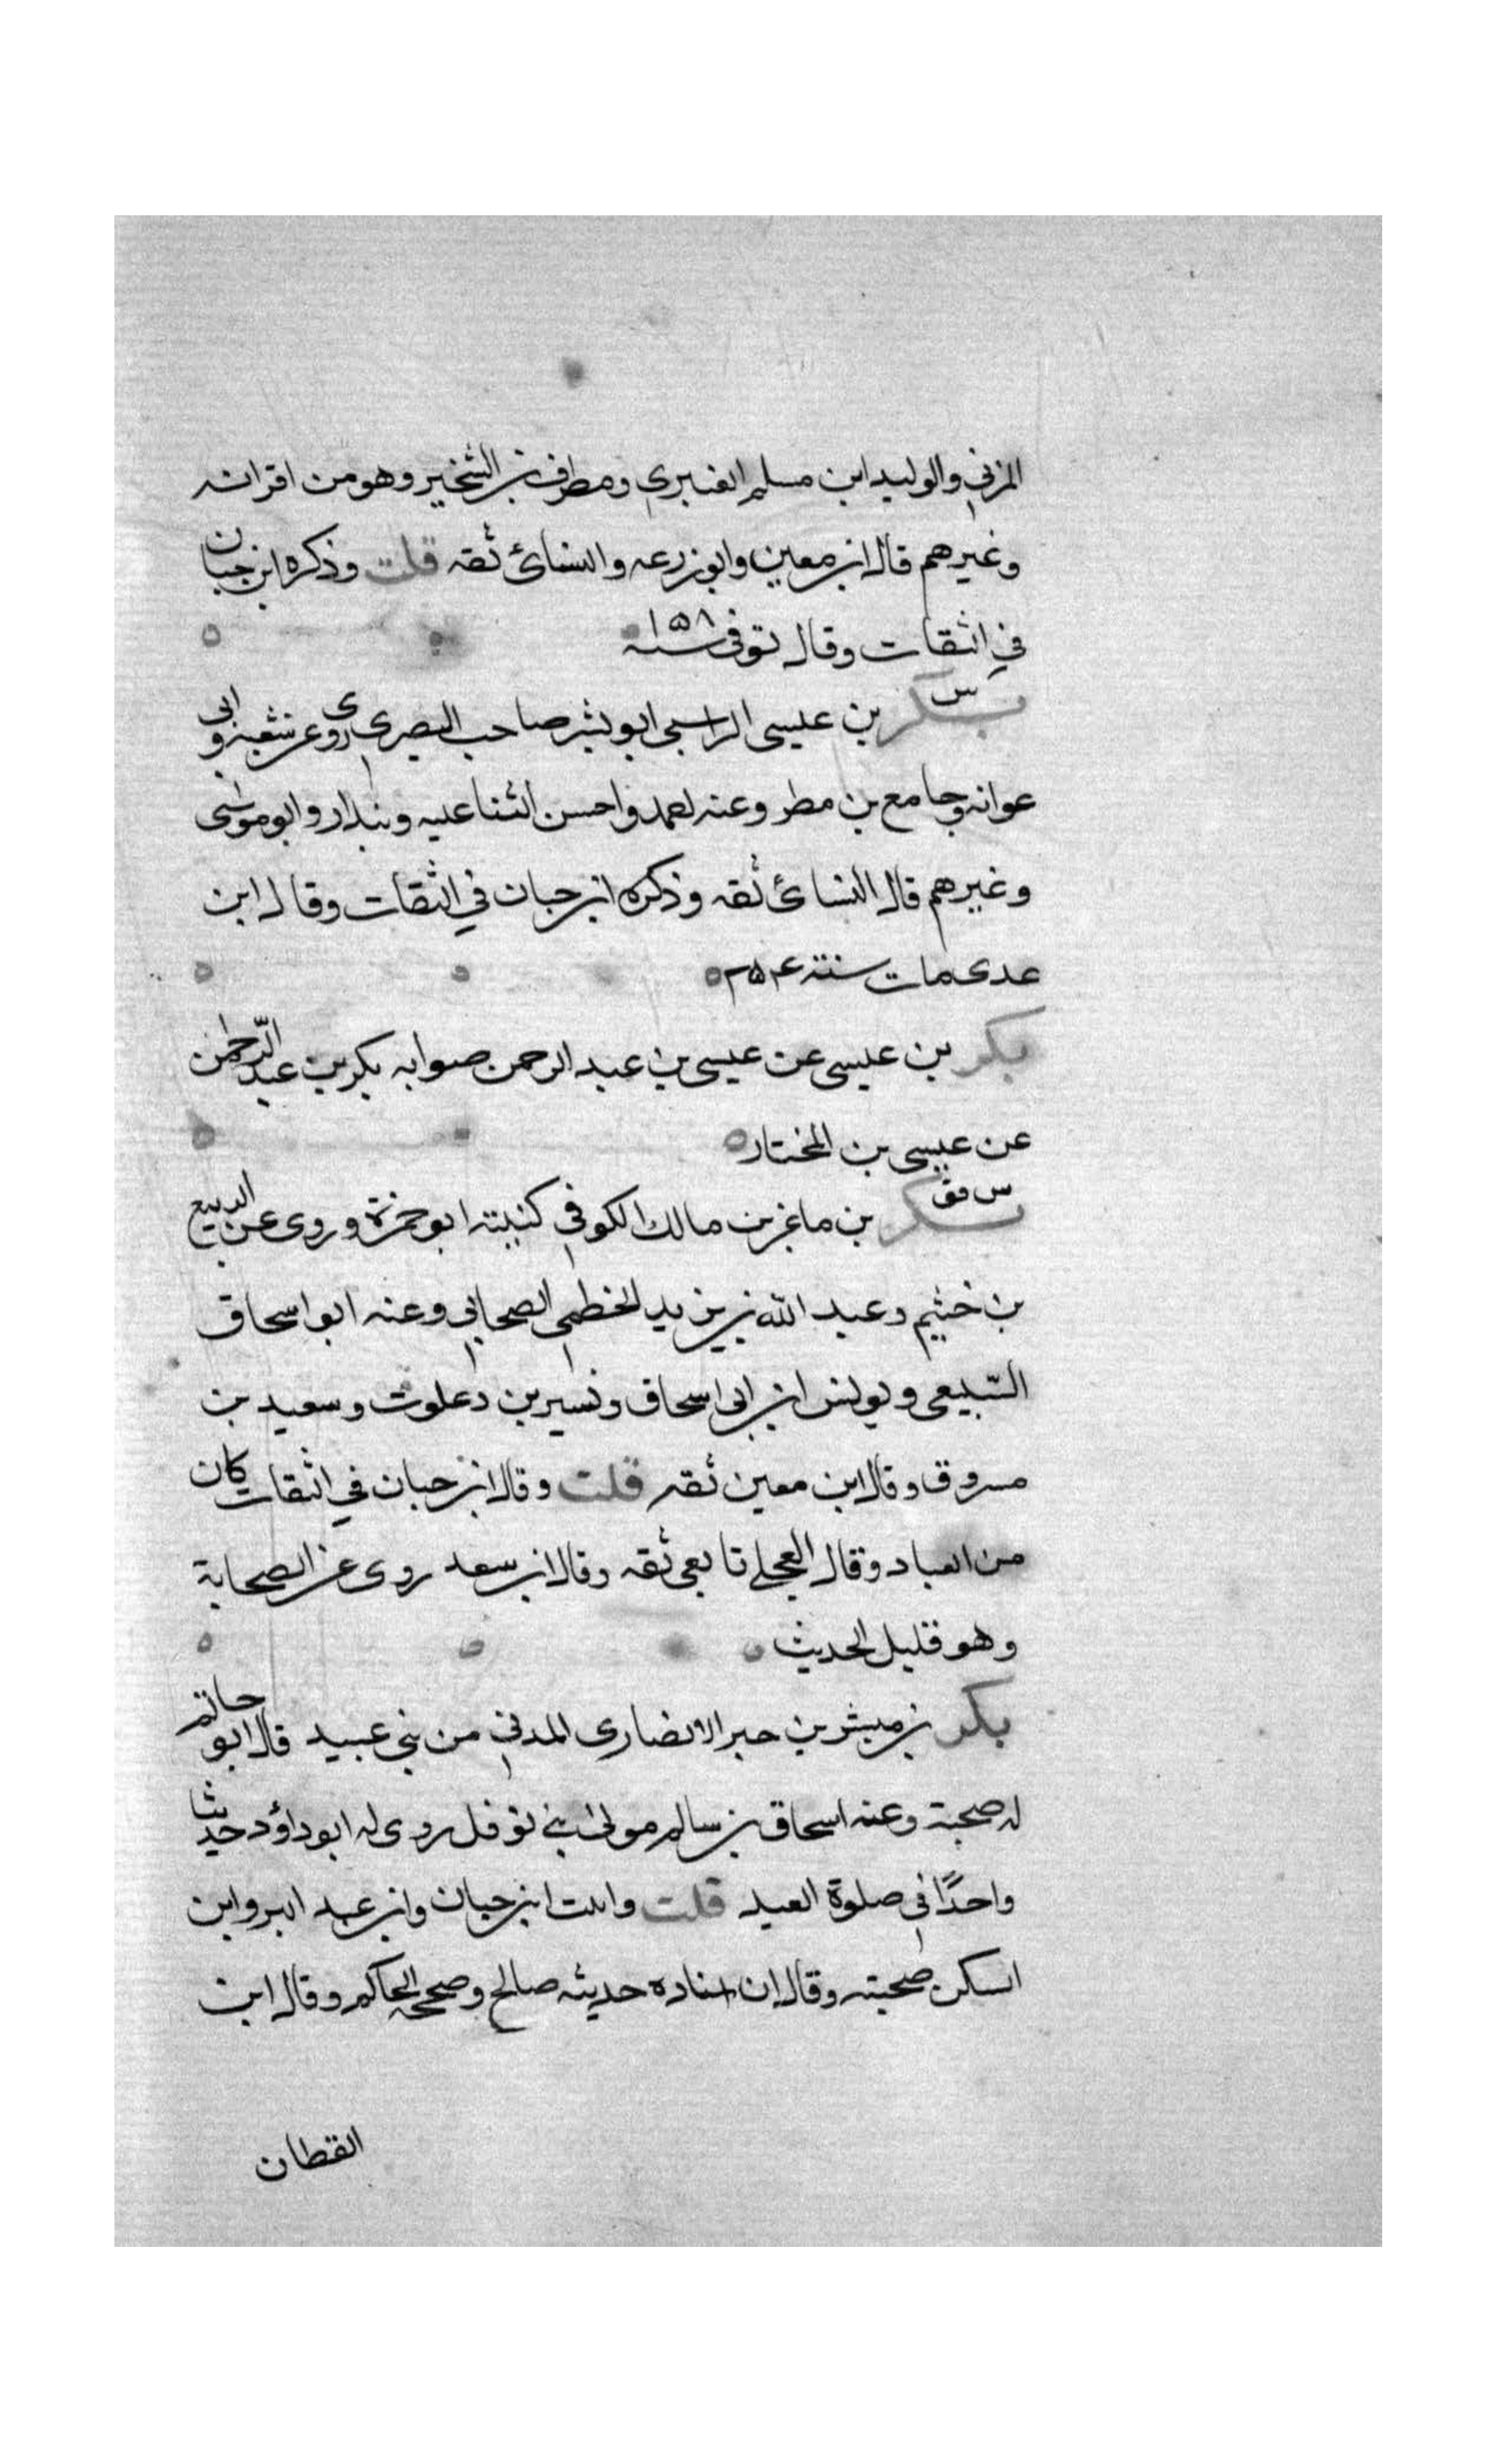 المزني والوليد ابن مسلم العنبري ومطرف بن الشخير وهو من اقرانه
وغيرهم قال ابن معين وابو زرعه والنسائ ثقه قلت وذكره ابن حبان
في الثقات وقال توفي سنه ١٥٨
س
بكر بن عيسى الراسبي ابو بشر صاحب البصرى روى عن شعبه وابى
عوانه وجامع بن مطر وعنه احمد واحسن الثنا عليه وبندار وابو موسى
وغيرهم قال النسائ ثقه وذكره ابن حبان في الثقات وقال ابن
عدى مات سنة ٢٥٤
بكر بن عيسى عن عيسى بن عبد الرحمن صوابه بكر بن عبد الرحمن
عن عيسى بن المختار
س فق
بكر بن ماعز بن مالك الكوفي كنيته ابو حمزة وروى عن الربيع
بن خثيم وعبد الله بن يزيد الخطمي الصحابي وعنه ابو اسحاق
السبيعي ويونس ابن ابى اسحاق ونسير بن ذعلوت وسعيد بن
مسروق وقال ابن معين ثقه قلت وقال ابن حبان في الثقات كان
من العباد وقال العجلي تابعي ثقه وقال ابن سعد روى عن الصحابة
وهو قليل الحديث
بكر بن مبشر بن حبر الانصارى المدني من بني عبيد قال ابو حاتم
له صحبة وعنه اسحاق بن سالم مولى بني نوفل روى له ابو داؤد حديثا
واحدًا في صلوة العيد قلت واثبت ابن حبان وابن عبد البر وابن
السكن صحبته وقال ان اسناده حديثه صالح وصححه الحاكم وقال ابن
القطان